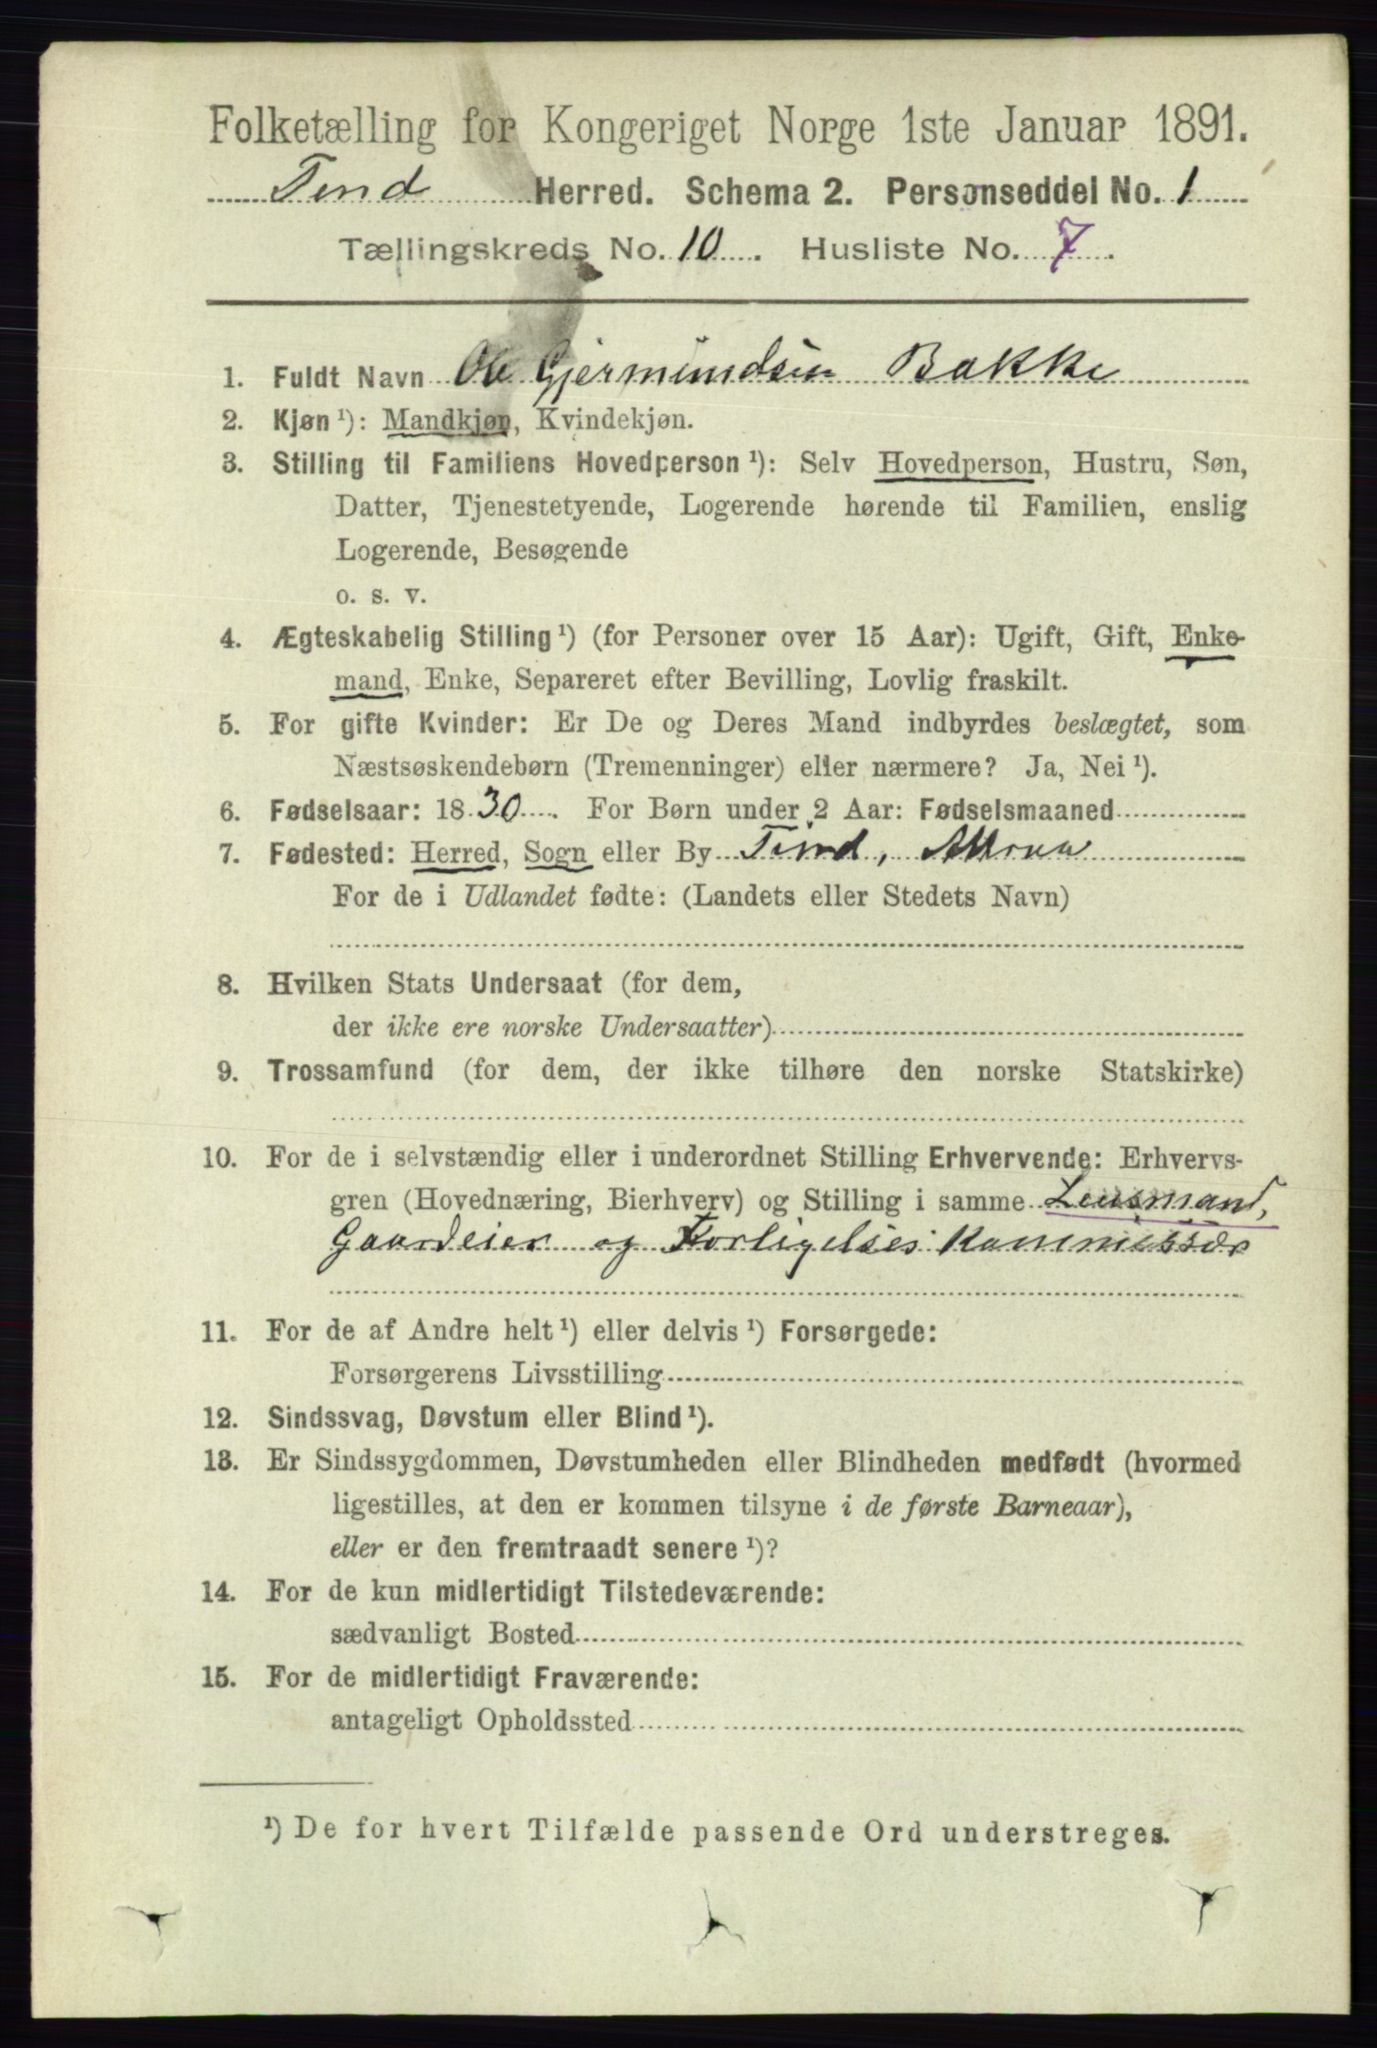 Folketælling for Kongeriget Norge 1ste Januar 1891.
Tind Herred. Schema 2. Personseddel No. 1
Tællingskreds No. 10. Husliste No. 7.
1. Fuldt Navn Ole Gjermundsen Bakke
2. Kjøn ¹): Mandkjøn, Kvindekjøn.
3. Stilling til Familiens Hovedperson ¹): Selv Hovedperson, Hustru, Søn,
Datter, Tjenestetyende, Logerende hørende til Familien, enslig
Logerende, Besøgende
o. s. v.
4. Ægteskabelig Stilling ¹) (for Personer over 15 Aar): Ugift, Gift, Enke-
mand, Enke, Separeret efter Bevilling, Lovlig fraskilt.
5. For gifte Kvinder: Er De og Deres Mand indbyrdes beslægtet, som
Næstsøskendebørn (Tremenninger) eller nærmere? Ja, Nei ¹).
6. Fødselsaar: 1830. For Børn under 2 Aar: Fødselsmaaned
7. Fødested: Herred, Sogn eller By Tind, Attraa
For de i Udlandet fødte: (Landets eller Stedets Navn)
8. Hvilken Stats Undersaat (for dem,
der ikke ere norske Undersaatter)
9. Trossamfund (for dem, der ikke tilhøre den norske Statskirke)
10. For de i selvstændig eller i underordnet Stilling Erhvervende: Erhvervs-
gren (Hovednæring, Bierhverv) og Stilling i samme Lensmand,
Gaardeier og Forligelses Kommissær
11. For de af Andre helt ¹) eller delvis ¹) Forsørgede:
Forsørgerens Livsstilling
12. Sindssvag, Døvstum eller Blind ¹).
13. Er Sindssygdommen, Døvstumheden eller Blindheden medfødt (hvormed
ligestilles, at den er kommen tilsyne i de første Barneaar),
eller er den fremtraadt senere ¹)?
14. For de kun midlertidigt Tilstedeværende:
sædvanligt Bosted
15. For de midlertidigt Fraværende:
antageligt Opholdssted
¹) De for hvert Tilfælde passende Ord understreges.